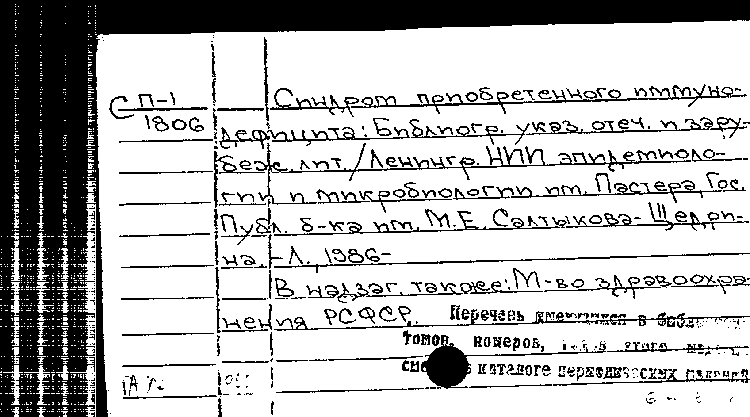 С П-1
1806
Синдром приобретенного иммуно-
дефицита: Библиогр. указ. отеч. и зару-
беж. лит. / Ленингр. НИИ эпидемиоло-
гии и микробиологии им. Пастера, Гос.
Публ. б-ка им. М.Е. Салтыкова-Щедри-
на. – Л., 1986-
В надзаг. также: М-во здравоохра-
нения РСФСР.
Перечень имеющихся в
томов, номеров, этого
каталоге периодических изданий